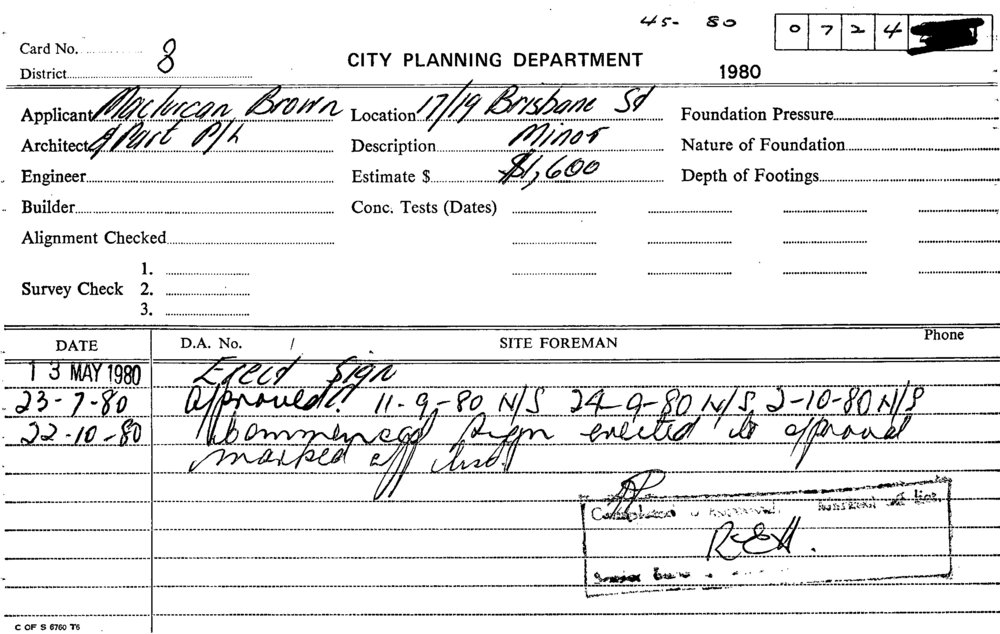 45- 80 0724
Card No. 8
District
CITY PLANNING DEPARTMENT
1980
Applicant Maclurcan Brown
Location 17/19 Brisbane St
Foundation Pressure
Architect & Part P/L
Description Minor
Nature of Foundation
Engineer
Estimate $ $1,600
Depth of Footings
Builder
Conc. Tests (Dates)
Alignment Checked
1.
Survey Check 2.
3.
DATE D.A. No. / SITE FOREMAN Phone
13 MAY 1980 Erect Sign
23-7-80 Approved. 11-9-80 N/S 24-9-80 N/S 2-10-80 N/S
22-10-80 Sign erected approved
marked off list
Completed list.
R
C OF S 6760 T6